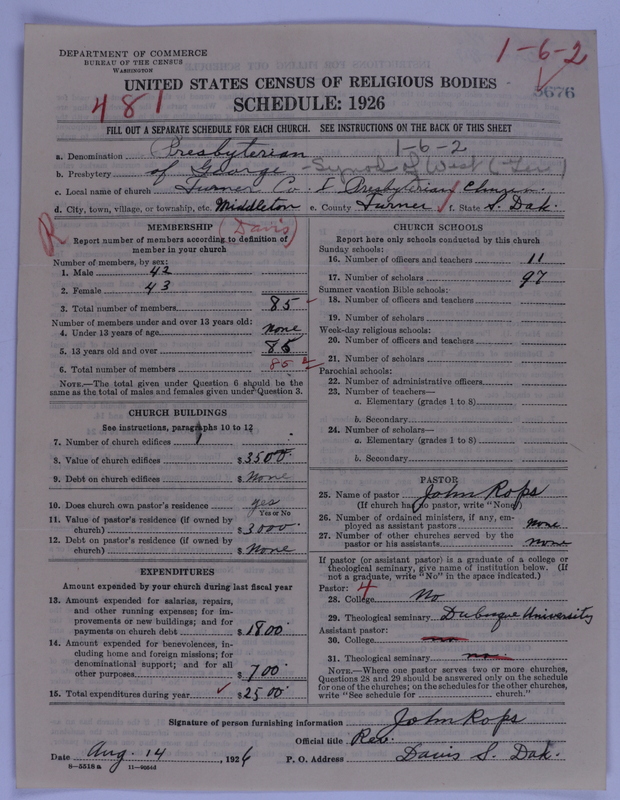 DEPARTMENT OF COMMERCE
BUREAU OF THE CENSUS
WASHINGTON
1-6-2
UNITED STATES CENSUS OF RELIGIOUS BODIES
481
SCHEDULE: 1926
5676
FILL OUT A SEPARATE SCHEDULE FOR EACH CHURCH. SEE INSTRUCTIONS ON THE BACK OF THIS SHEET
1-6-2
a. Denomination Presbyterian
b. Presbytery of George - Synod of West (Ger)
c. Local name of church Turner Co. I Presbyterian Church
d. City, town, village, or township, etc. Middleton e. County Turner f. State S. Dak.
R
(Davis)
MEMBERSHIP
Report number of members according to definition of
member in your church
Number of members, by sex:
1. Male 42
2. Female 43
3. Total number of members 85
Number of members under and over 13 years old:
4. Under 13 years of age none
5. 13 years old and over 85
6. Total number of members 85
NOTE.—The total given under Question 6 should be
same as the total of males and females given under Question 3.
CHURCH BUILDINGS
See instructions, paragraphs 10 to 12
7. Number of church edifices 1
8. Value of church edifices $3500
9. Debt on church edifices $None
10. Does church own pastor's residence yes
Yes or No
11. Value of pastor's residence (if owned by
church) $3000
12. Debt on pastor's residence (if owned by
church) $None
EXPENDITURES
Amount expended by your church during last fiscal year
13. Amount expended for salaries, repairs,
and other running expenses; for im-
provements or new buildings; and for
payments on church debt $1800
14. Amount expended for benevolences, in-
cluding home and foreign missions; for
denominational support; and for all
other purposes $700
15. Total expenditures during year $2500
CHURCH SCHOOLS
Report here only schools conducted by this church
Sunday schools:
16. Number of officers and teachers 11
17. Number of scholars 97
Summer vacation Bible schools:
18. Number of officers and teachers
19. Number of scholars
Week-day religious schools:
20. Number of officers and teachers
21. Number of scholars
Parochial schools:
22. Number of administrative officers
23. Number of teachers—
a. Elementary (grades 1 to 8)
b. Secondary
24. Number of scholars—
a. Elementary (grades 1 to 8)
b. Secondary
PASTOR
25. Name of pastor John Rops
(If church has no pastor, write "None")
26. Number of ordained ministers, if any, em-
ployed as assistant pastors none
27. Number of other churches served by the
pastor or his assistants none
If pastor (or assistant pastor) is a graduate of a college or
theological seminary, give name of institution below. (If
not a graduate, write "No" in the space indicated.)
Pastor: 4
28. College No
29. Theological seminary Dubuque University
Assistant pastor:
30. College no
31. Theological seminary no
NOTE.—Where one pastor serves two or more churches,
Questions 28 and 29 should be answered only on the schedule
for one of the churches; on the schedules for the other churches,
write "See schedule for church."
Signature of person furnishing information John Rops
Official title Rev.
Date Aug. 14, 1926 P. O. Address Davis S. Dak.
8—5518 a 11—9064d